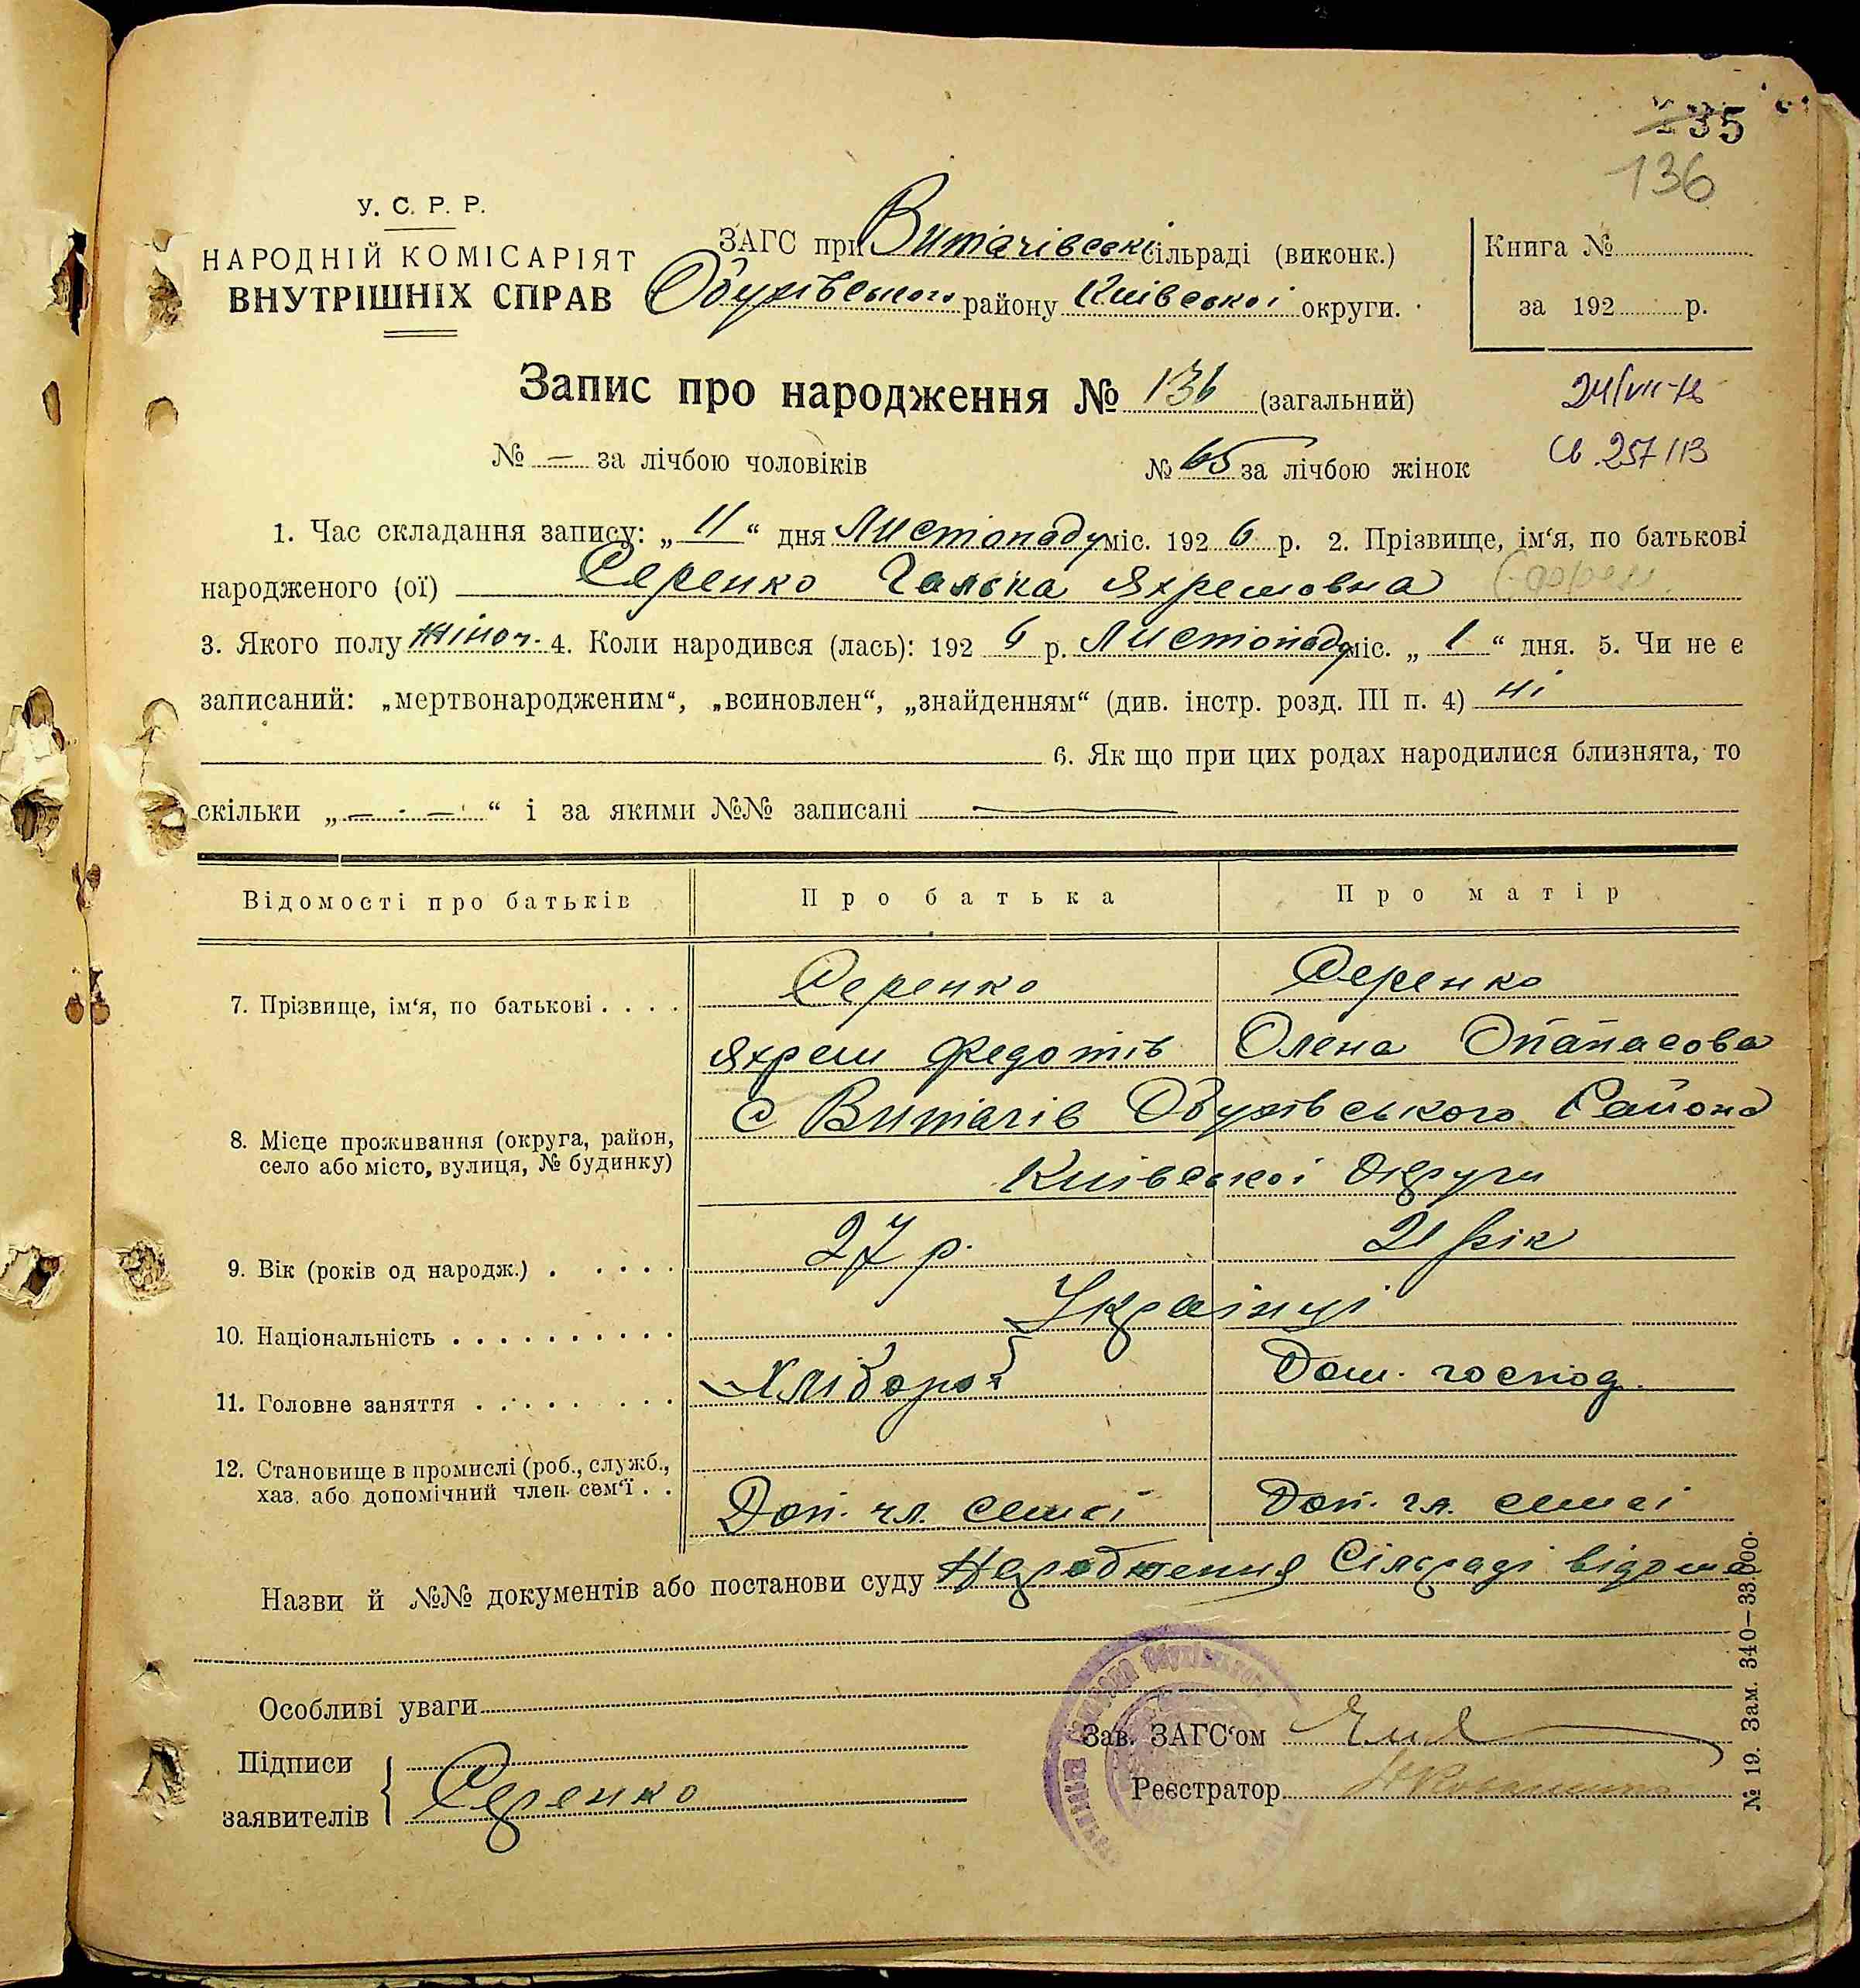 135
136
У. С. Р. Р.
НАРОДНІЙ КОМІСАРІЯТ
ВНУТРІШНІХ СПРАВ
ЗАГС при Витачівські сільраді (виконк.)
Обухівського району Київської округи.
Книга №
за 192 р.
Запис про народження № 136 (загальний)
24/VII-
№ — за лічбою чоловіків № 65 за лічбою жінок
257/13
1. Час складання запису: „ 11 “ дня Листопаду міс. 192 6 р. 2. Прізвище, ім‘я, по батькові
народженого (ої) Серенко Галька Яхремовна
3. Якого полу жіноч. 4. Коли народився (лась): 192 6 р. Листопаду міс. „ 1 “ дня. 5. Чи не є
записаний: „мертвонародженим“, „всиновлен“, „знайденням“ (див. інстр. розд. III п. 4) ні
6. Як що при цих родах народилися близнята, то
скільки „ — · — “ і за якими №№ записані —
Відомості про батьків Про батька Про матір
7. Прізвище, ім‘я, по батькові . . . . Серенко Серенко
Яхрем Федотів Олена Опанасова
8. Місце проживання (округа, район,
село або місто, вулиця, № будинку)
с Витачів Обухівського Района
Київської Округи
9. Вік (років од народж.) . . . . . 27 р. 21 рік
10. Національність . . . . . . . . . . Українці
11. Головне заняття . . . . . . . . . Хлібороб Дом. господ.
12. Становище в промислі (роб., служб.,
хаз. або допомічний член сем‘ї . .
Доп. чл. семєі Доп. чл. семєі
Назви й №№ документів або постанови суду Народження Сільраді відомо
Особливі уваги
Підписи
заявителів { Серенко
Зав. ЗАГС‘ом
Реєстратор
№ 19. Зам. 340—33.000.